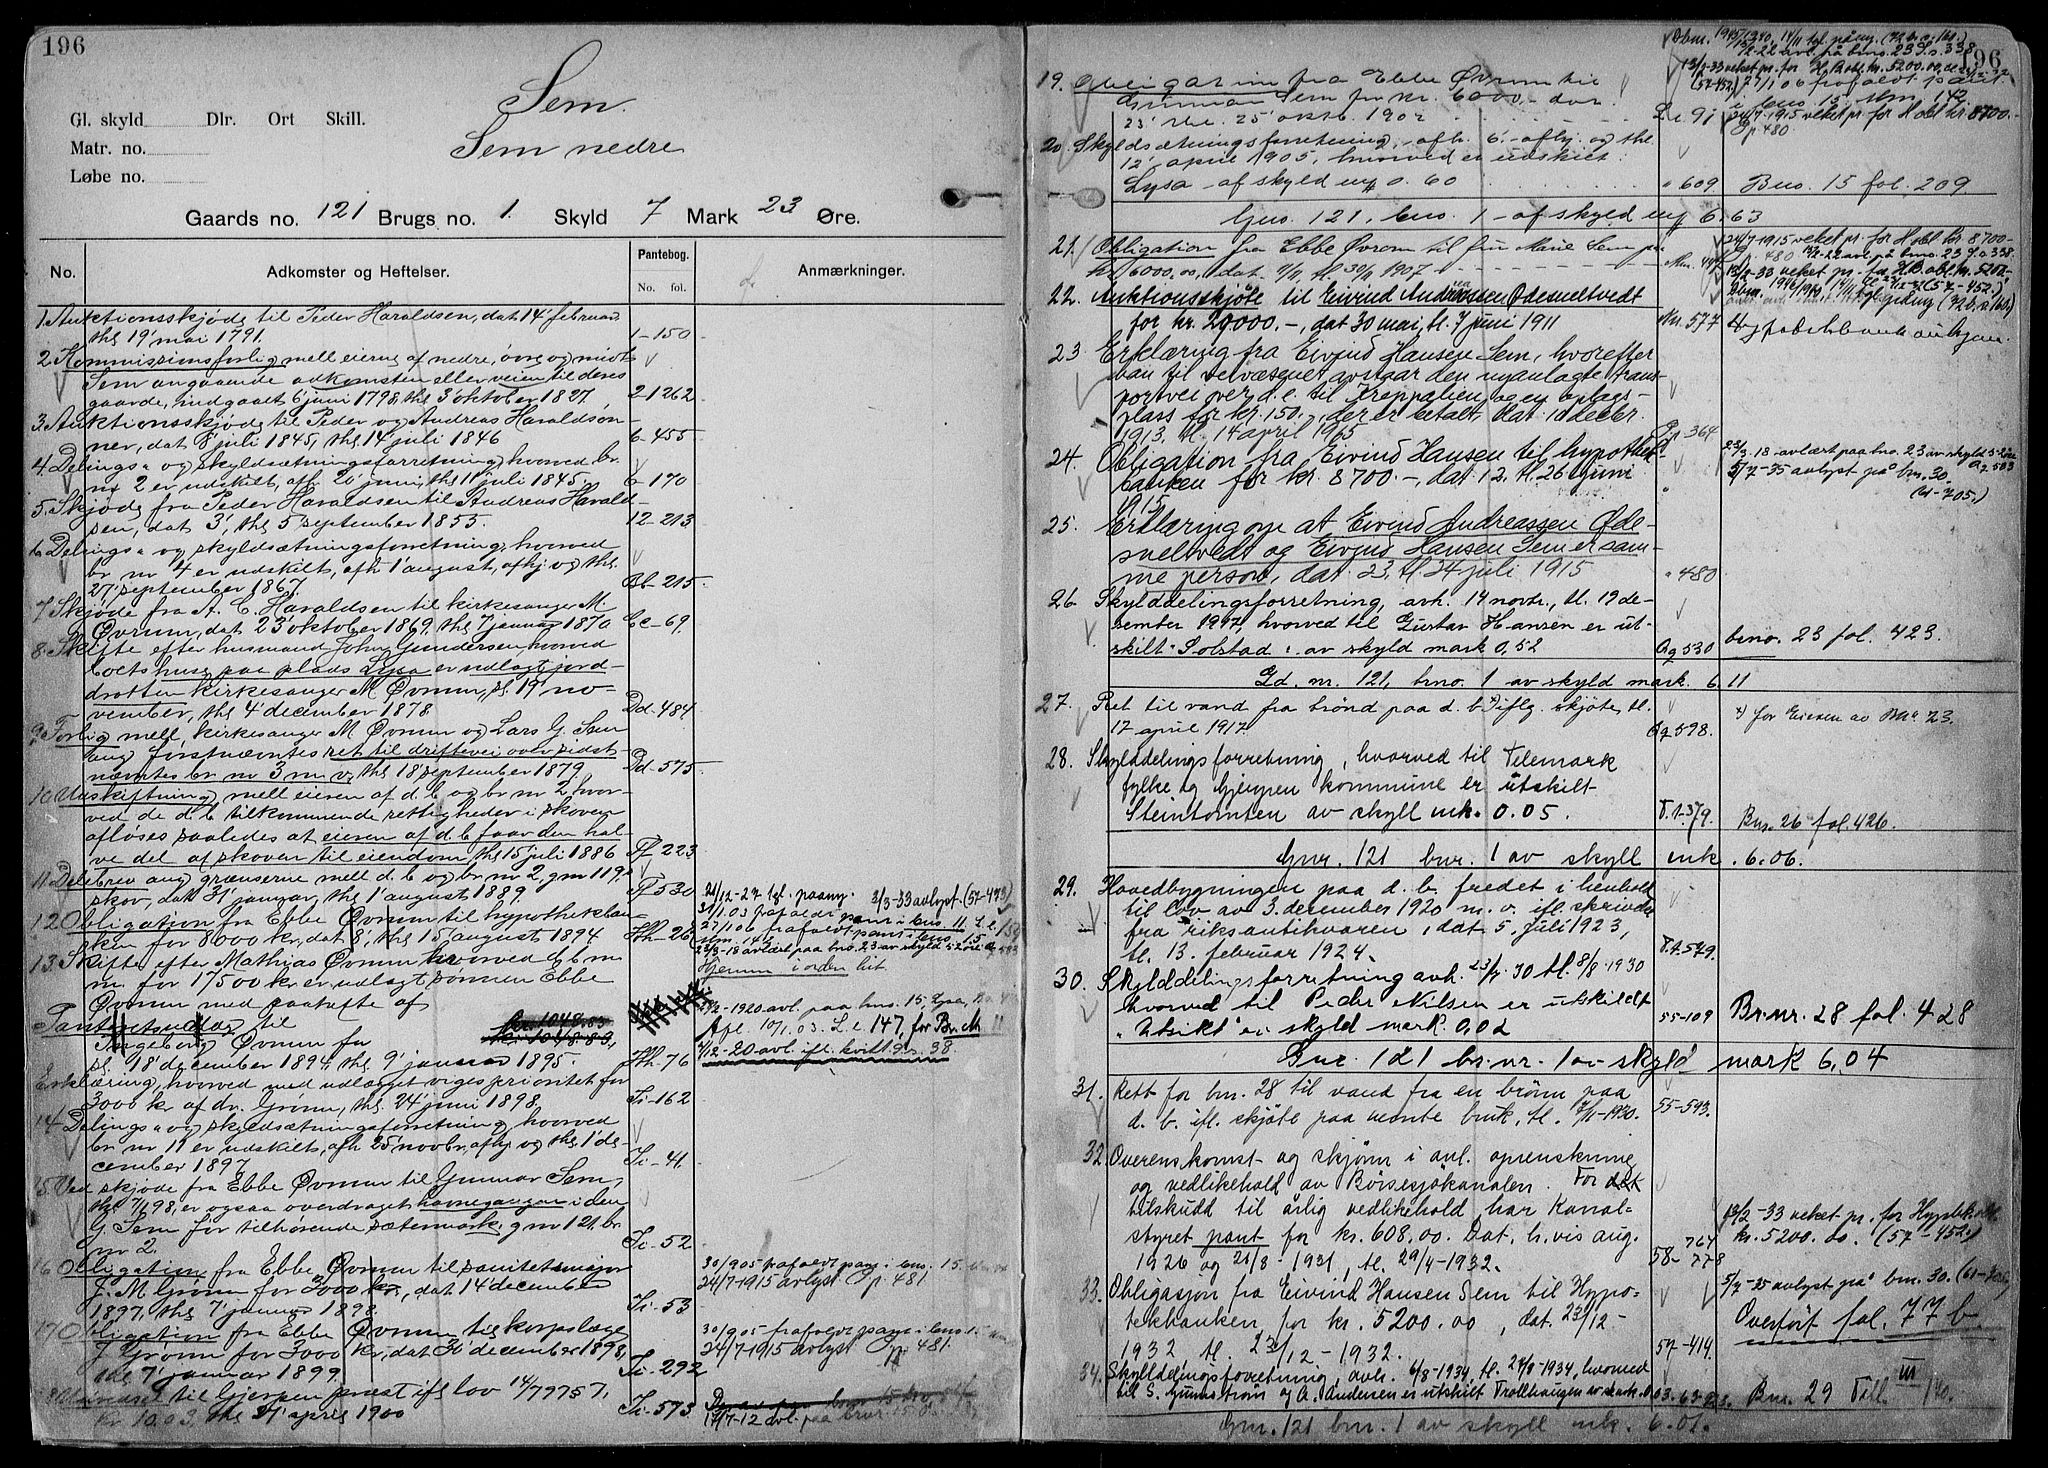 196
Sem.
Gl. skyld Dlr. Ort Skill.
Sem nedre
Matr. no.
Løbe no.
Gaards no. 121 Brugs no. 1. Skyld 7 Mark 23 Øre.
No. Adkomster og Heftelser. Pantebog. No. fol. Anmærkninger.
1. Auktionsskjøde til Peder Haraldsen, dat 14' februar,
thl 19' mai 1791. 1-150
2. Kommissionsforlig mell eierne af nedre, övre og midt
Sem angaaende adkomsten eller veien til deres
gaarde, indgaaet 6' juni 1798, thl 3' oktober 1827. 2-1262
3. Auktionsskjøde til Peder og Andreas Haraldsøn-
ner, dat 8' juli 1845, thl 14' juli 1846 6-455
4. Delings- og skyldsætningsforretning, hvorved br.
nr 2 er udskilt, afh 20' juni, thl 11' juli 1845. 6-170
5. Skjøde fra Peder Haraldsen til Andreas Harald-
sen, dat 3', thl 5' september 1855. 12-213
6. Delings- og skyldsætningsforretning, hvorved
br nr 4 er udskilt, afh 1' august, afhj og thl.
27' september 1867. Bb-215
7. Skjøde fra A. C. Haraldsen til kirkesanger M
Øvrum, dat 23' oktober 1869, thl 7' januar 1870 Cc-69
8. Skifte efter husmand John Gundersen, hvorved
boets huse paa plads Lysa er udlagt jord-
drotten kirkesanger M Øvrum, sl. 19' no-
vember, thl 4' december 1878. Dd-484
9. Forlig mell, kirkesanger M Øvrum og Lars G. Sem
ang førstnævntes ret til driftevei over sidst-
nævntes br nr 3 m v, thl 18' september 1879. Dd-575
10. Udskiftning mell eieren af d. b og br nr 2, hvor-
ved de d. b tilkommende rettigheder i skoven
afløses saaledes at eieren af d. b faar den hal-
ve del af skoven til eiendom, thl 15' juli 1886 Ff-223
11. Delebrev ang grænserne mell d. b og br nr 2, g nr 119,
skov, dat 31' januar, thl 1' august 1889. Ff-530
12. Obligation fra Ebbe Øvrum til hypothekban-
ken for 8000 kr, dat 8', thl 15' august 1894 Hh-26
21/12-27 tgl. paany. 2/3-33 avlyst. (57-473)
23/3-18 avlæst paa bno. 23 av skyld 52 øre
13. Skifte efter Mathias Øvrum hvorved d. b m
m for 17500 kr er udlagt sønnen Ebbe
Øvrum med paahefte af
Panteheftelse til kr. 1048.83
Ingeborg Øvrum for kr. 1048.83,
sl. 18' december 1894, thl 9' januar 1895. Hh-76
2/2-1920 avl. paa bno. 15 Lysa,
Afl. 10/1.03. L. c. 147, for Br. No 11
4/12-20 avl. ifl. kvitt 9r. 38.
Erklæring, hvorved med udlægget viges prioritet for
3000 kr af dr. Grønn, thl 24' juni 1898. Ii-162
14. Delings- og skyldsætningsforretning, hvorved
br nr 11 er udskilt, afh 25' novbr, afhj og thl 1' de-
cember 1897 Ii-41
15. Ved skjøde fra Ebbe Øvrum til Gunnar Sem,
thl 7/1 98, er ogsaa overdraget havnegangen i den
G. Sem før tilhørende sætermark, g nr 121, br.
nr 2. Ii-52
16. Obligation fra Ebbe Øvrum til sanitetsmajor
J. M. Grønn for 3000 kr, dat 14' december
1897, thl 7' januar 1898. Ii-53
30/905 frafaldt pant i bno. 15
24/7-1915 avlyst Op. 481.
17. Obligation fra Ebbe Øvrum til korpslæge
J. Grønn for 3000 kr, dat 30' december 1898,
thl 7' januar 1899. Ii-292
30/905 frafaldt pant i bno 15
24/7-1915 avlyst Op. 481.
18. til Gjerpen prest ifl lov
thl 21' april 1900 Ii-573
17/7-12 avl. paa bnr. 15
196
19. Obligation fra Ebbe Øvrum til
Gunnar Sem for kr. 6000.- dat.
23', thl. 25' oktb. 1902 L c. 91
13/2-33 veket pr. for H. B. obl. kr. 5200.00,
24/7-1915 veket pr. for H obl kr. 8700.-
Op. 480
20. Skyldsætningsforretning, afh. 6', afhj. og thl.
12' april 1905, hvorved er udskilt:
Lysa - af skyld mk 0.60 " 609 Bno. 15 fol. 209.
Gno. 121, bno. 1 - af skyld mk 6.63
21. Obligation fra Ebbe Øvrum til fru Marie Sem for
kr. 6000.00, dat. 11/11, tl. 30/11 1907
24/7-1915 veket pr. for H obl kr 8700-
13/2-33 veket pr. for H.B. obl. kr. 5200-
22. Auktionsskjøte til Eivind Andreassen Ødesneltvedt
for kr. 20000.-, dat 30 mai, tl. 7 juni 1911 Nn. 577
23. Erklæring fra Eivind Hansen Sem, hvorefter
han til veivæsenet avstaar den nyanlagte trans-
portvei over d. e. til Kreppalien, og en oplags-
plass for kr. 150.-, der er betalt, dat. 10 decbr.
1913, tl. 14 april 1915 Op 364
24. Obligation fra Eivind Hansen til hypothek-
banken for kr. 8700.-, dat. 12. tl. 26 juni
1915
23/3.18 avlært paa bno. 23 av skyld 52 øre
5/7-35 avlyst på bnr. 30.
(61-705.)
25. Erklæring om at Eivind Andreassen Øde-
sneltvedt og Eivind Hansen Sem er sam-
me person, dat. 23, tl. 24 juli 1915 " 480
26. Skylddelingsforretning, avh. 14 novbr., tl. 19 de-
sember 1917, hvorved til Gustav Hansen er ut-
skilt "Solstad" av skyld mark 0,52 Qq 530 bno. 23 fol. 423.
Gd. nr. 121, bno. 1 av skyld mark 6.11
27. Ret til vand fra brønd paa d. b. iflg. skjøte, tl.
17 april 1917 Qq 598. for Eieren av Bno 23.
28. Skylddelingsforretning, hvorved til Telemark
fylke og Gjerpen kommune er utskilt
Steintomten av skyll mk. 0.05. T.1-379. Bnr. 26 fol. 426.
Gnr. 121 bnr. 1 av skyll mk. 6.06.
29. Hovedbygningen paa d. b. fredet i henhold
til lov av 3. december 1920 m. v. ifl. skrivelse
fra riksantikvaren, dat. 5. juli 1923,
tl. 13. februar 1924. T.1-579.
30. Skylddelingsforretning avh. 23/7-30 tl. 8/8-1930
hvorved til Peder Nilsen er utskildt
"Utsikt" av skyld mark 0,02 55-109 Br.nr. 28 fol. 428
Gnr. 121 br.nr. 1 av skyld mark 6,04
31. Rett for bnr. 28 til vand fra en brønn paa
d. b. ifl. skjøte paa nevnte bruk, tl. 7/11-1930. 55-593.
32. Overenskomst og skjønn i anl. oprenskning
og vedlikehold av Børsesjøkanalen. For
tilskudd til årlig vedlikehold har Kanal-
styret pant for kr. 608,00. Dat. h.vis aug.
1926 og 21/8-1931, tl. 29/4-1932. 58-764 778
13/2-33 veket pr. for Hypotekbk
kr. 5200.00. (57-452.)
33. Obligasjon fra Eivind Hansen Sem til Hypo-
tekbanken for kr. 5200.00, dat. 23/12-
1932 tl. 23/12-1932. 57-414.
5/7-35 avlyst på bnr. 30.
Overført fol. 77 b
34. Skylddelingsforretning, avh. 6/8-1934, tl. 24/8-1934, hvorved
til S. Gundstrøm og A. Andersen er utskilt Trollhaugen av mark Bnr. 29 Till. III 140.
Gnr. 121 bnr. 1 av skyll mk. 6.01.